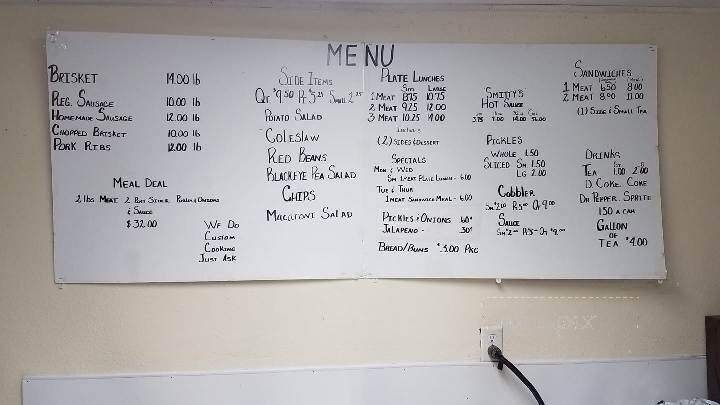 MENU
BRISKET 19.00 lb
REG. SAUSAGE 10.00 lb
HOMEMADE SAUSAGE 12.00 lb
CHOPPED BRISKET 10.00 lb
PORK RIBS 12.00 lb
MEAL DEAL
2 lbs MEAT 2 PINT SIDES PICKLES & ONIONS
& SAUCE
$32.00
WE DO
CUSTOM
COOKING
JUST ASK
SIDE ITEMS
QT $9.50 PT $5.25 SMALL 2.25
POTATO SALAD
COLESLAW
RED BEANS
BLACKEYE PEA SALAD
CHIPS
MACARONI SALAD
PLATE LUNCHES
SM LARGE
1 MEAT 8.75 10.75
2 MEAT 9.25 12.00
3 MEAT 10.25 14.00
INCLUDES
(2) SIDES & DESSERT
SPECIALS
MON & WED
SM 1 MEAT PLATE LUNCH - 6.00
TUE & THUR
1 MEAT SANDWICH MEAL - 6.00
PICKLES & ONIONS 60¢
JALAPENO - 30¢
BREAD/BUNS $3.00 PKG
SMITTY'S
HOT SAUCE
3.75 7.00
PICKLES
WHOLE 1.50
SLICED SM 1.50
LG 2.00
COBBLER
SM $2.00 PT 5.00 QT 9.00
SAUCE
SM $2.00 PT 5- QT $9.00
SANDWICHES
1 MEAT 6.50 8.00
2 MEAT 8.00 11.00
(1) SIDE & SMALL TEA
DRINKS
TEA 1.00 2.00
D. COKE, COKE
DR PEPPER, SPRITE
1.50 A CAN
GALLON
OF
TEA $4.00